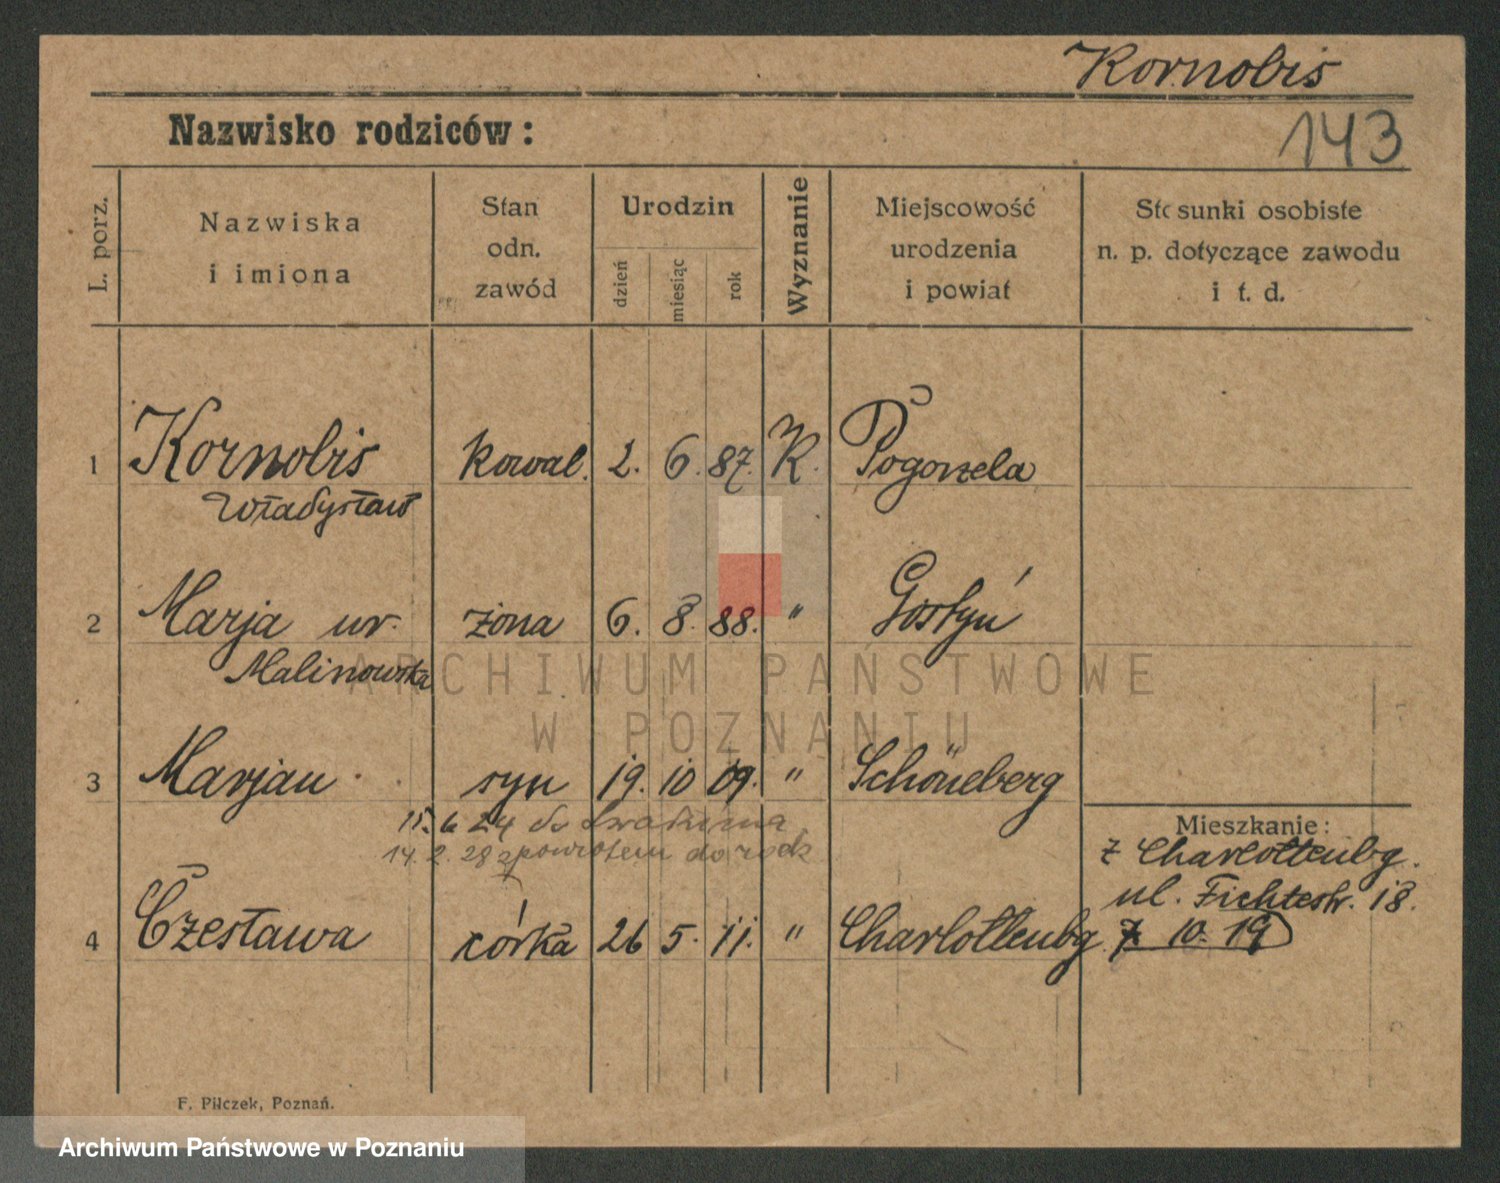 Kornobis
Nazwisko rodziców:
143
L. porz.
Nazwiska
i imiona
Stan
odn.
zawód
Urodzin
dzień
miesiąc
rok
Wyznanie
Miejscowość
urodzenia
i powiat
Stosunki osobiste
n. p. dotyczące zawodu
i t. d.
1 Kornobis kowal. 2. 6. 87. K. Pogorzela
Władysław
2 Marja ur. żona 6. 8. 88. " Gostyń
Malinowska
ARCHIWUM PAŃSTWOWE
W POZNANIU
3 Marjan syn 19. 10 09. " Schöneberg
15. 6 24 do
14. 2. 28 z powrotem do rodz
4 Czesława córka 26 5. 11. " Charlottenbg.
Mieszkanie:
z Charlottenbg.
ul. Fichtestr. 18.
7. 10. 19
F. Pilczek, Poznań.
Archiwum Państwowe w Poznaniu